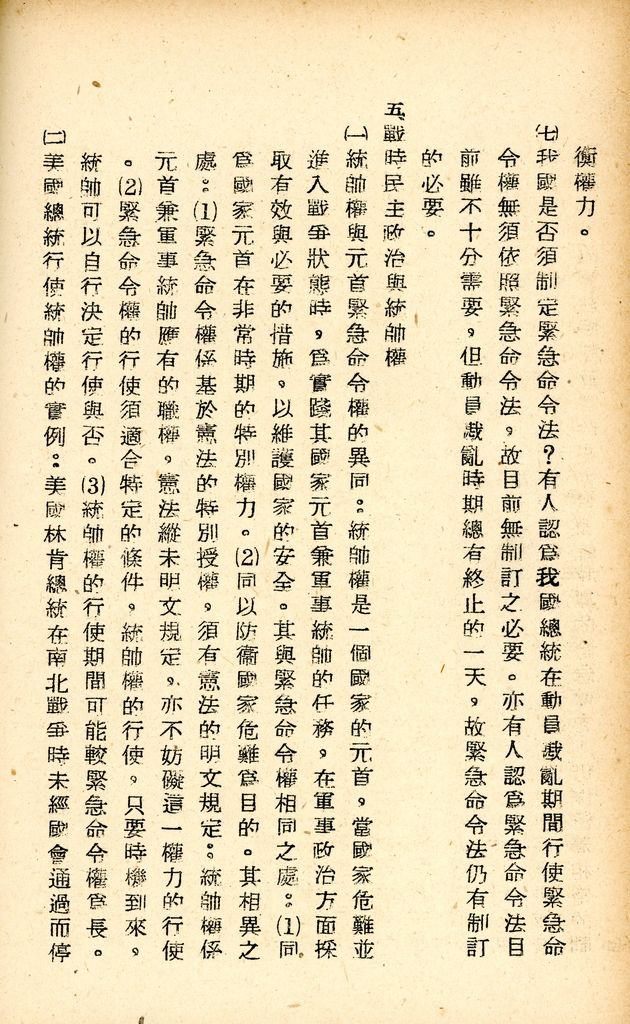 衡權力。
㈦我國是否須制定緊急命令法？有人認爲我國總統在動員戡亂期間行使緊急命
令權無須依照緊急命令法，故目前無制訂之必要。亦有人認爲緊急命令法目
前雖不十分需要，但動員戡亂時期總有終止的一天，故緊急命令法仍有制訂
的必要。
五、戰時民主政治與統帥權
㈠統帥權與元首緊急命令權的異同：統帥權是一個國家的元首，當國家危難並
進入戰爭狀態時，爲實踐其國家元首兼軍事統帥的任務，在軍事政治方面採
取有效與必要的措施，以維護國家的安全。其與緊急命令權相同之處：(1)同
爲國家元首在非常時期的特別權力。(2)同以防衞國家危難爲目的。其相異之
處：(1)緊急命令權係基於憲法的特別授權，須有憲法的明文規定：統帥權係
元首兼軍事統帥應有的職權，憲法縱未明文規定，亦不妨礙這一權力的行使
。(2)緊急命令權的行使須適合特定的條件，統帥權的行使，只要時機到來，
統帥可以自行決定行使與否。(3)統帥權的行使期間可能較緊急命令權爲長。
㈡美國總統行使統帥權的實例：美國林肯總統在南北戰爭時未經國會通過而停